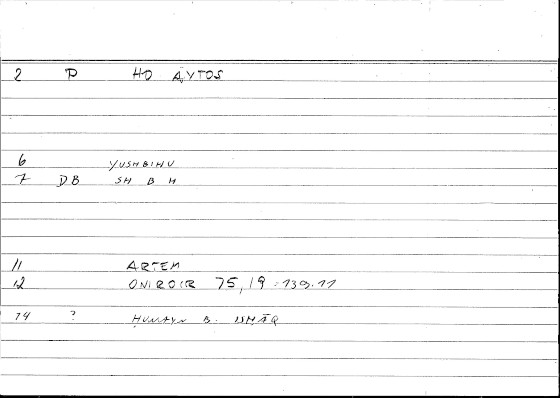 2 D HO AYTOS
6 YUSHBIHU
7 DB SH B H
11 ARTEM
12 ONIROCR 75,19-139.11
14 ? ḤUNAYN B. ISḤĀQ